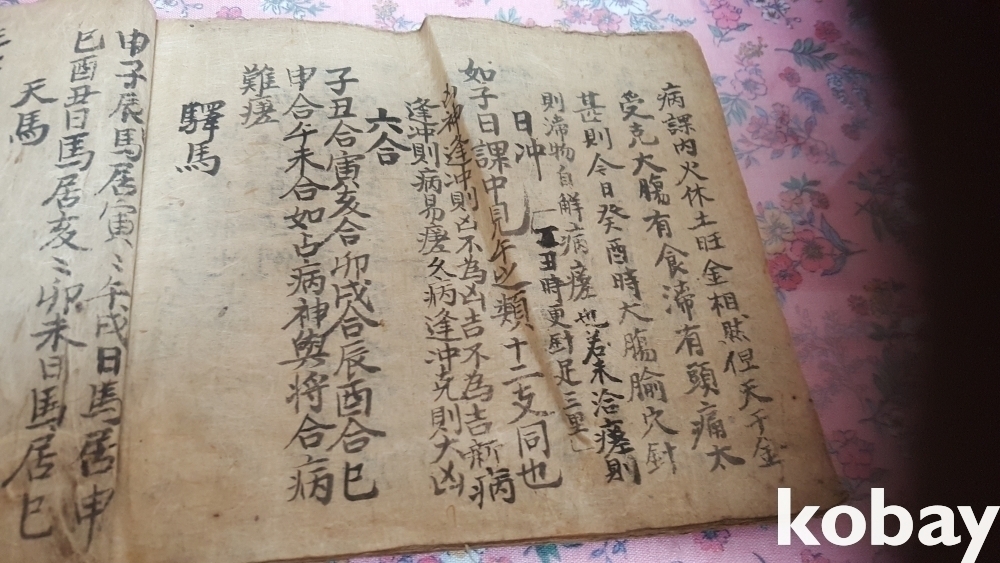 病課內火休土旺金相然但天干金
受克大膓有食滯有頭痛太
甚則今日癸酉時大膓腧穴針
則滯物自解病瘥也若未洽瘥則
丑時更針足三里
日冲
如子日課中見午之類十二支同也
凶神逢冲則凶不為凶吉不為吉新病
逢冲則病易瘥久病逢冲克則大凶
六合
子丑合寅亥合卯戌合辰酉合巳
申合午未合如占病神與将合病
難瘥
驛馬
申子辰馬居寅〻午戌日馬居申
巳酉丑日馬居亥〻卯未日馬居巳
天馬
kobay